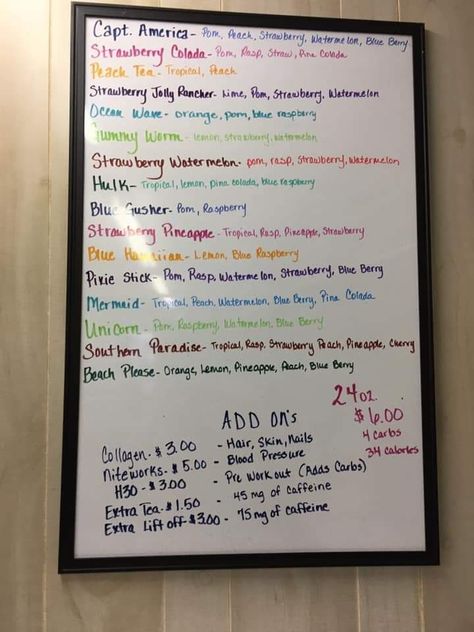 Capt. America - Pom, Peach, Strawberry, Watermelon, Blue Berry
Strawberry Colada - Pom, Rasp, Straw, Pina Colada
Peach Tea - Tropical, Peach
Strawberry Jolly Rancher - Lime, Pom, Strawberry, Watermelon
Ocean Wave - orange, pom, blue raspberry
Gummy Worm - lemon, strawberry, watermelon
Strawberry Watermelon - pom, rasp, Strawberry, Watermelon
Hulk - Tropical, lemon, pina colada, blue raspberry
Blue Gusher - Pom, Raspberry
Strawberry Pineapple - Tropical, Rasp, Pineapple, Strawberry
Blue Hawaiian - Lemon, Blue Raspberry
Pixie Stick - Pom, Rasp, Watermelon, Strawberry, Blue Berry
Mermaid - Tropical, Peach, Watermelon, Blue Berry, Pina Colada
Unicorn - Pom, Raspberry, Watermelon, Blue Berry
Southern Paradise - Tropical, Rasp, Strawberry Peach, Pineapple, Cherry
Beach Please - Orange, Lemon, Pineapple, Peach, Blue Berry
24oz.
$6.00
4 carbs
34 calories
ADD ON's
Collagen - $3.00 - Hair, Skin, Nails
Niteworks - $5.00 - Blood Pressure
H30 - $3.00 - Pre Workout (Adds Carbs)
Extra Tea - $1.50 - 45 mg of caffeine
Extra Lift off - $3.00 - 75 mg of caffeine